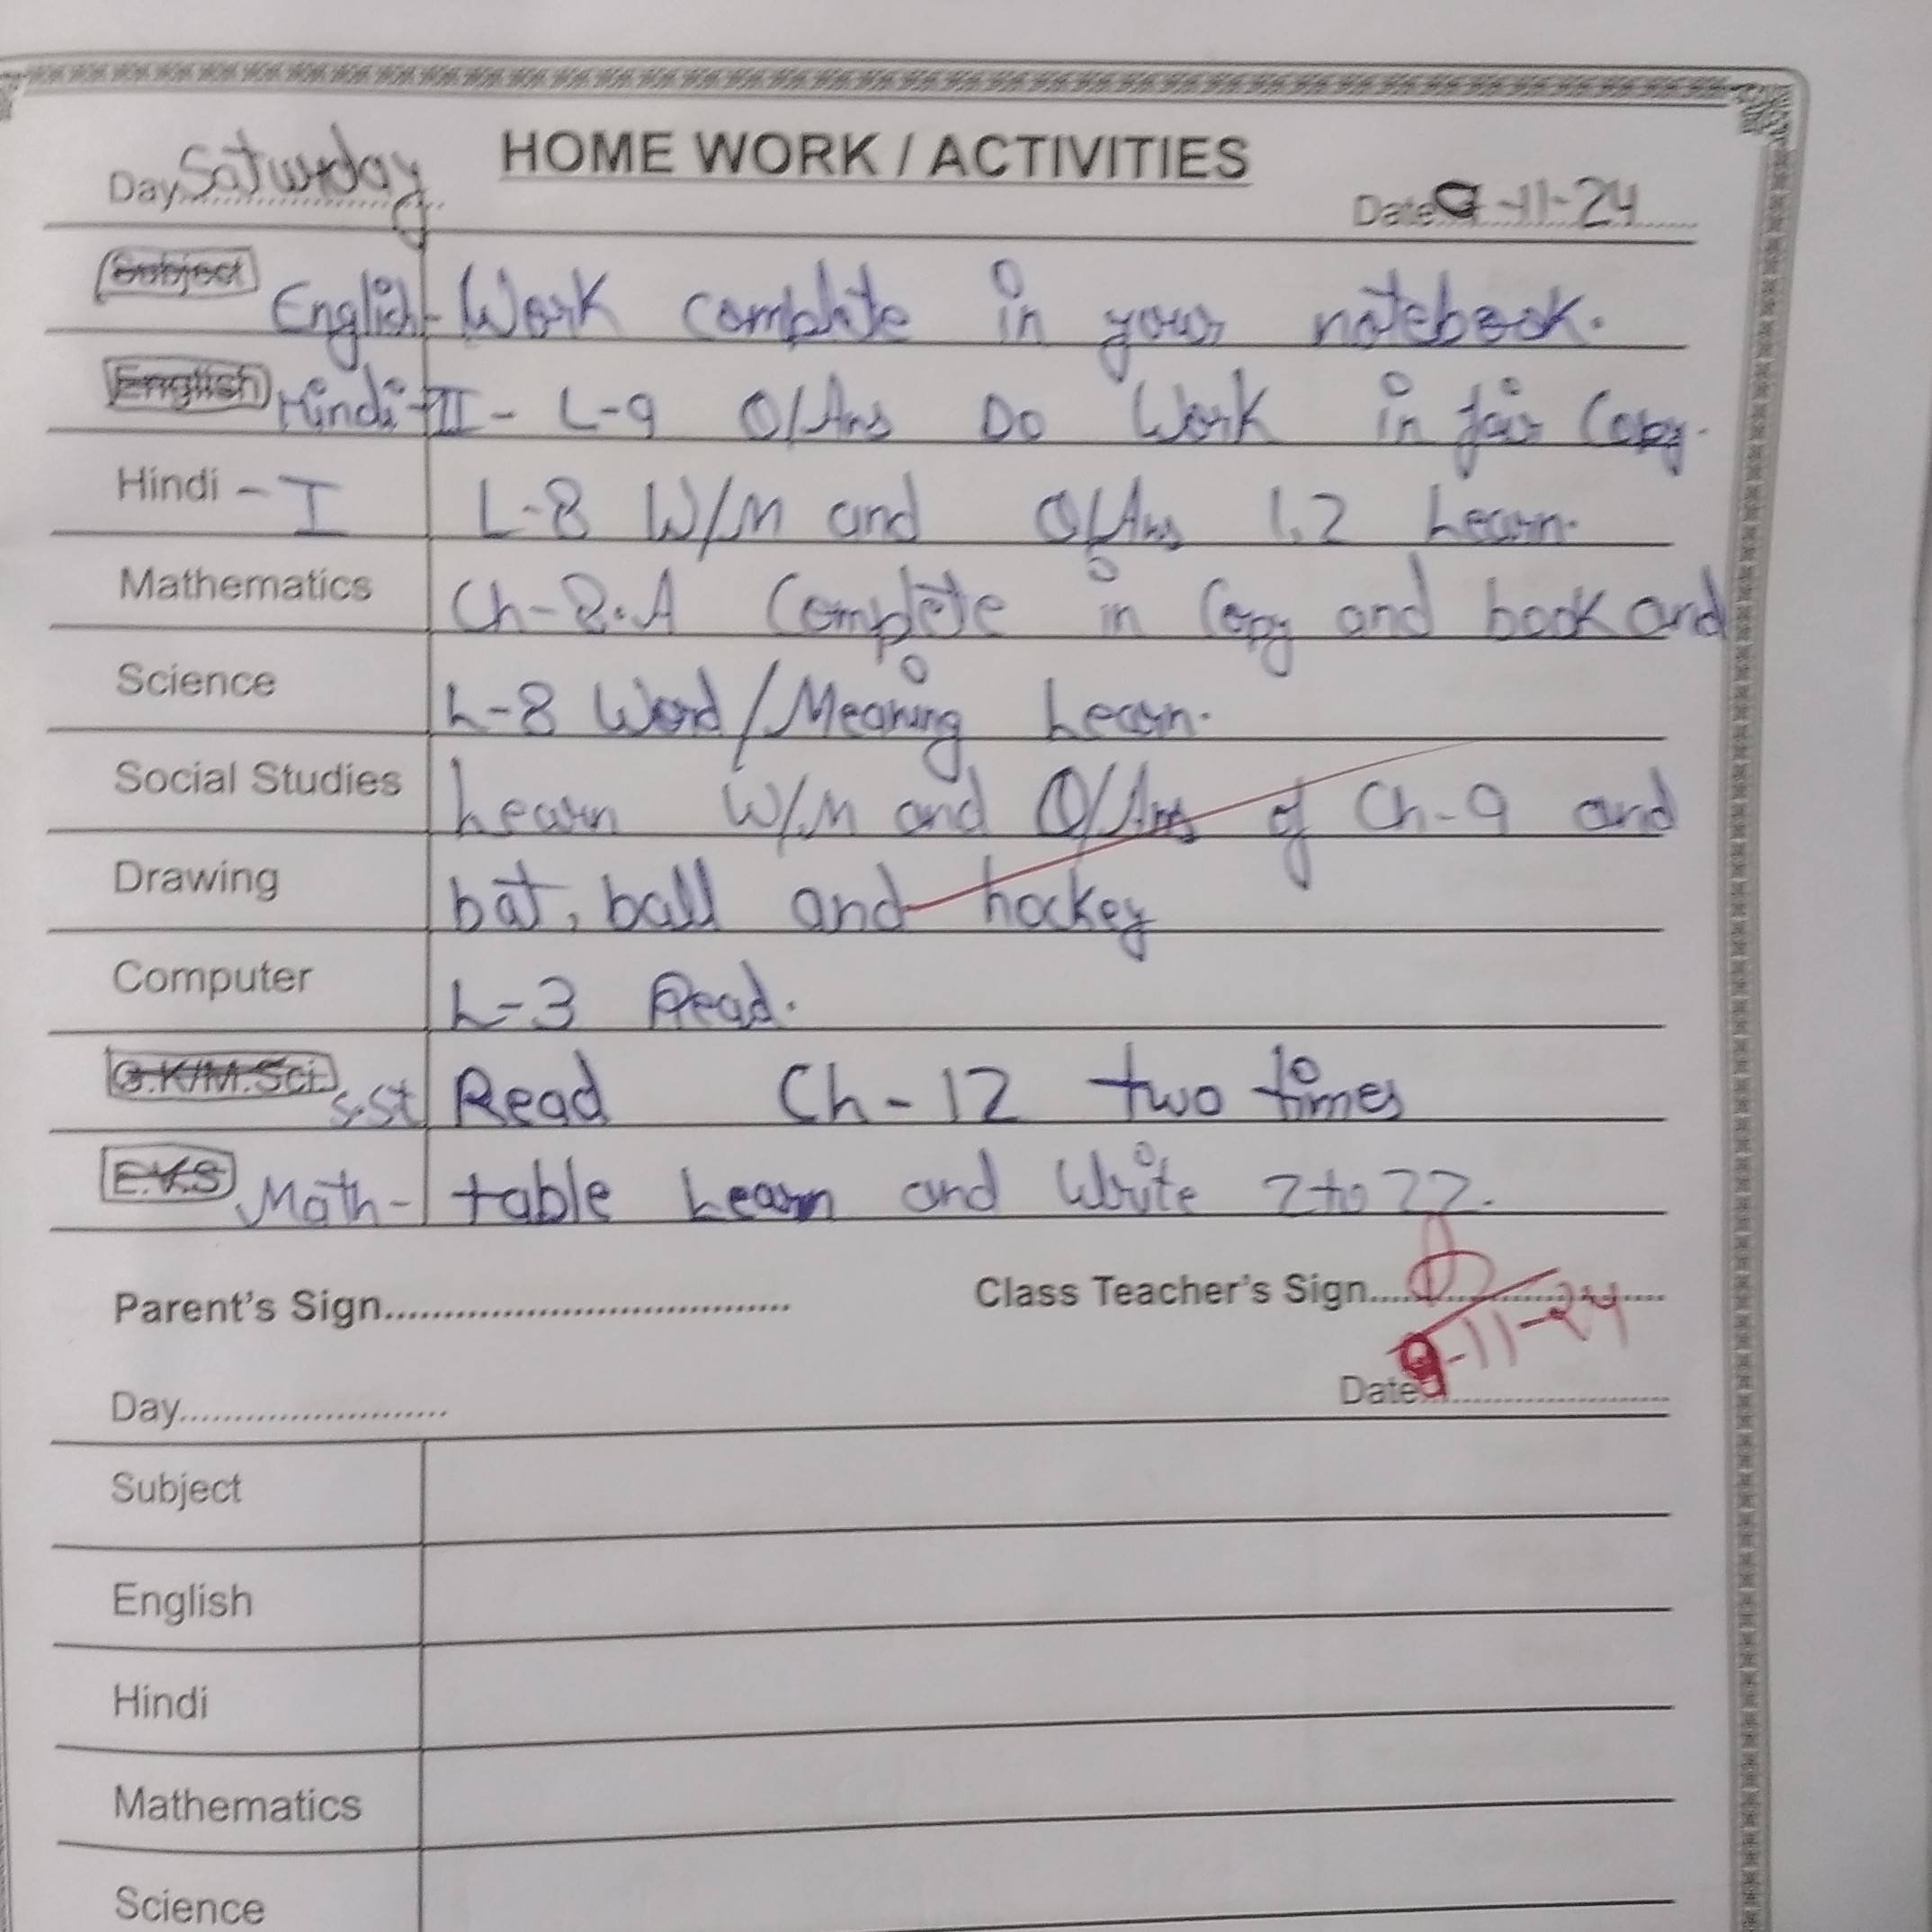 HOME WORK / ACTIVITIES
Day Saturday Date 9-11-24
Subject English - Work complete in your notebook.
English Hindi-II - L-9 Q/Ans Do Work in fair Copy.
Hindi - I L-8 W/M and Q/Ans 1,2 Learn.
Mathematics Ch-8.A Complete in Copy and book and
Science L-8 Word/Meaning Learn.
Social Studies Learn W/M and Q/Ans of Ch-9 and
Drawing bat, ball and hockey
Computer L-3 Read.
G.K/M.Sci. S.St Read Ch-12 two times
E.V.S Math - table Learn and Write 2 to 22.
Parent's Sign........ Class Teacher's Sign........
9-11-24
Day........ Date........
Subject
English
Hindi
Mathematics
Science